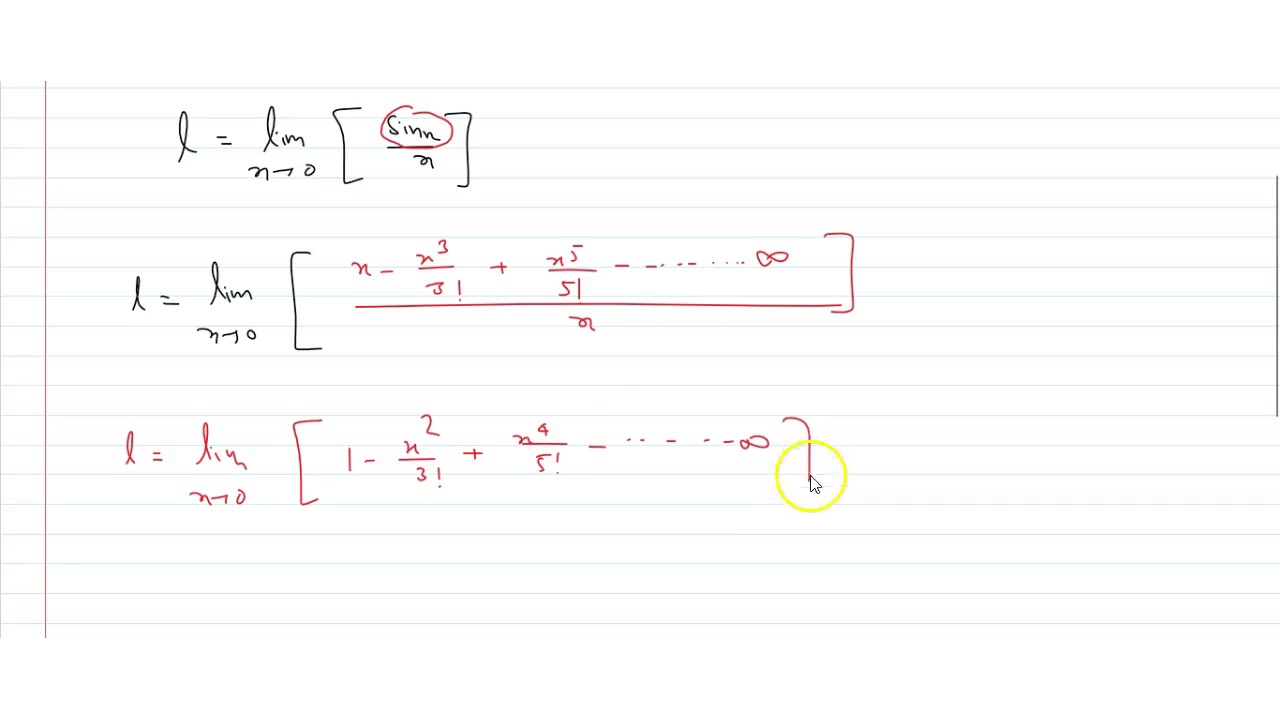 l = lim x→0 [ sinx / x ]
l = lim x→0 [ x - x³/3! + x⁵/5! - ........ ∞ / x ]
l = lim x→0 [ 1 - x²/3! + x⁴/5! - .. - .. - ∞ ]